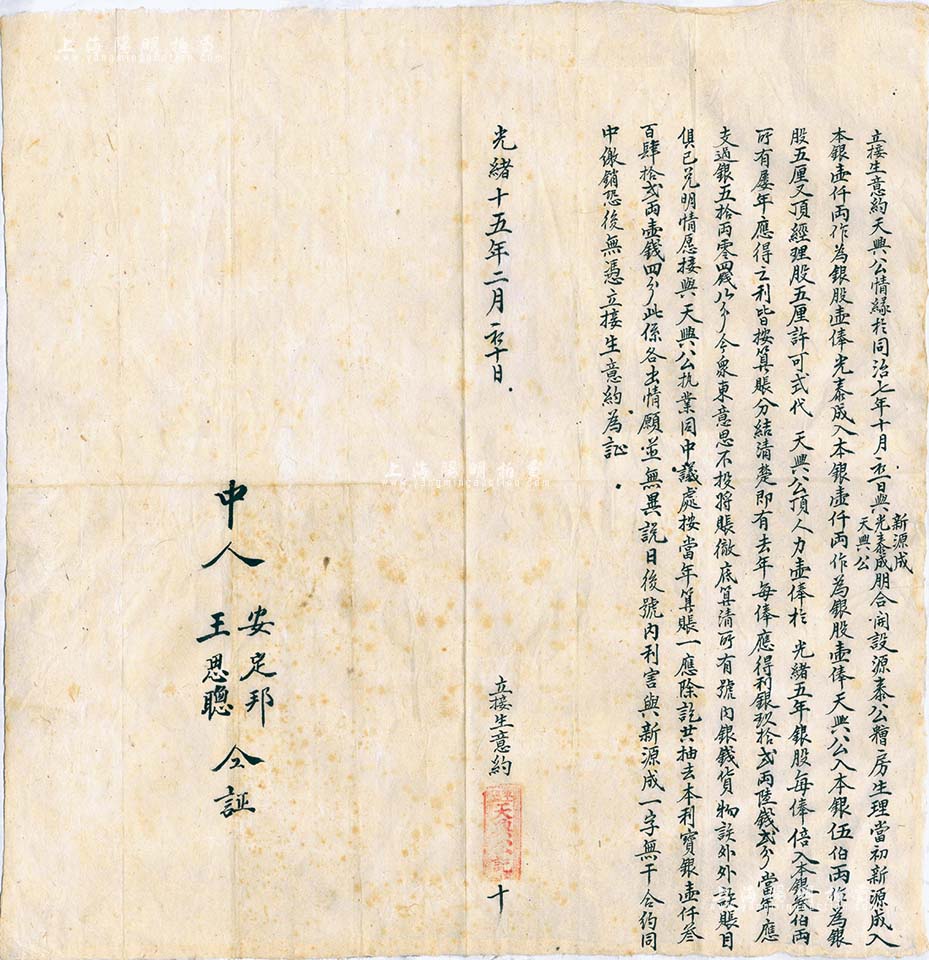 立接生意約天興公情緣於同治七年十月初一日與新源成光泰成天興公朋合開設源泰公糟房生理當初新源成入
本銀壹仟兩作為銀股壹俸光泰成入本銀壹仟兩作為銀股壹俸天興公入本銀伍佰兩作為銀
股五厘又頂經理股五厘許可式代 天興公頂人力壹俸於 光緒五年銀股每俸倍入本銀叁佰兩
所有屡年應得之利皆按算賬分結清楚即有去年每俸應得利銀玖拾弍兩陸錢弍分當年應
支過銀五拾兩零四錢八分今衆東意思不投將賬徹底算清所有號内銀錢貨物該外外欸賬目
俱已兑明情愿接與天興公执業同中議處按當年算賬一應除訖共抽去本利寶銀壹仟叁
百肆拾弍兩壹錢四分此係各出情願並無異説日後號内利害與新源成一字無干合約同
中繳銷恐後無憑立接生意約為証
光緒十五年二月初十日
立接生意約
天興公記
十
中人
安定邦
王思聰
仝証
上海陽明拍賣
www.yangmingauction.com
上海陽明拍賣
www.yangmingauction.com